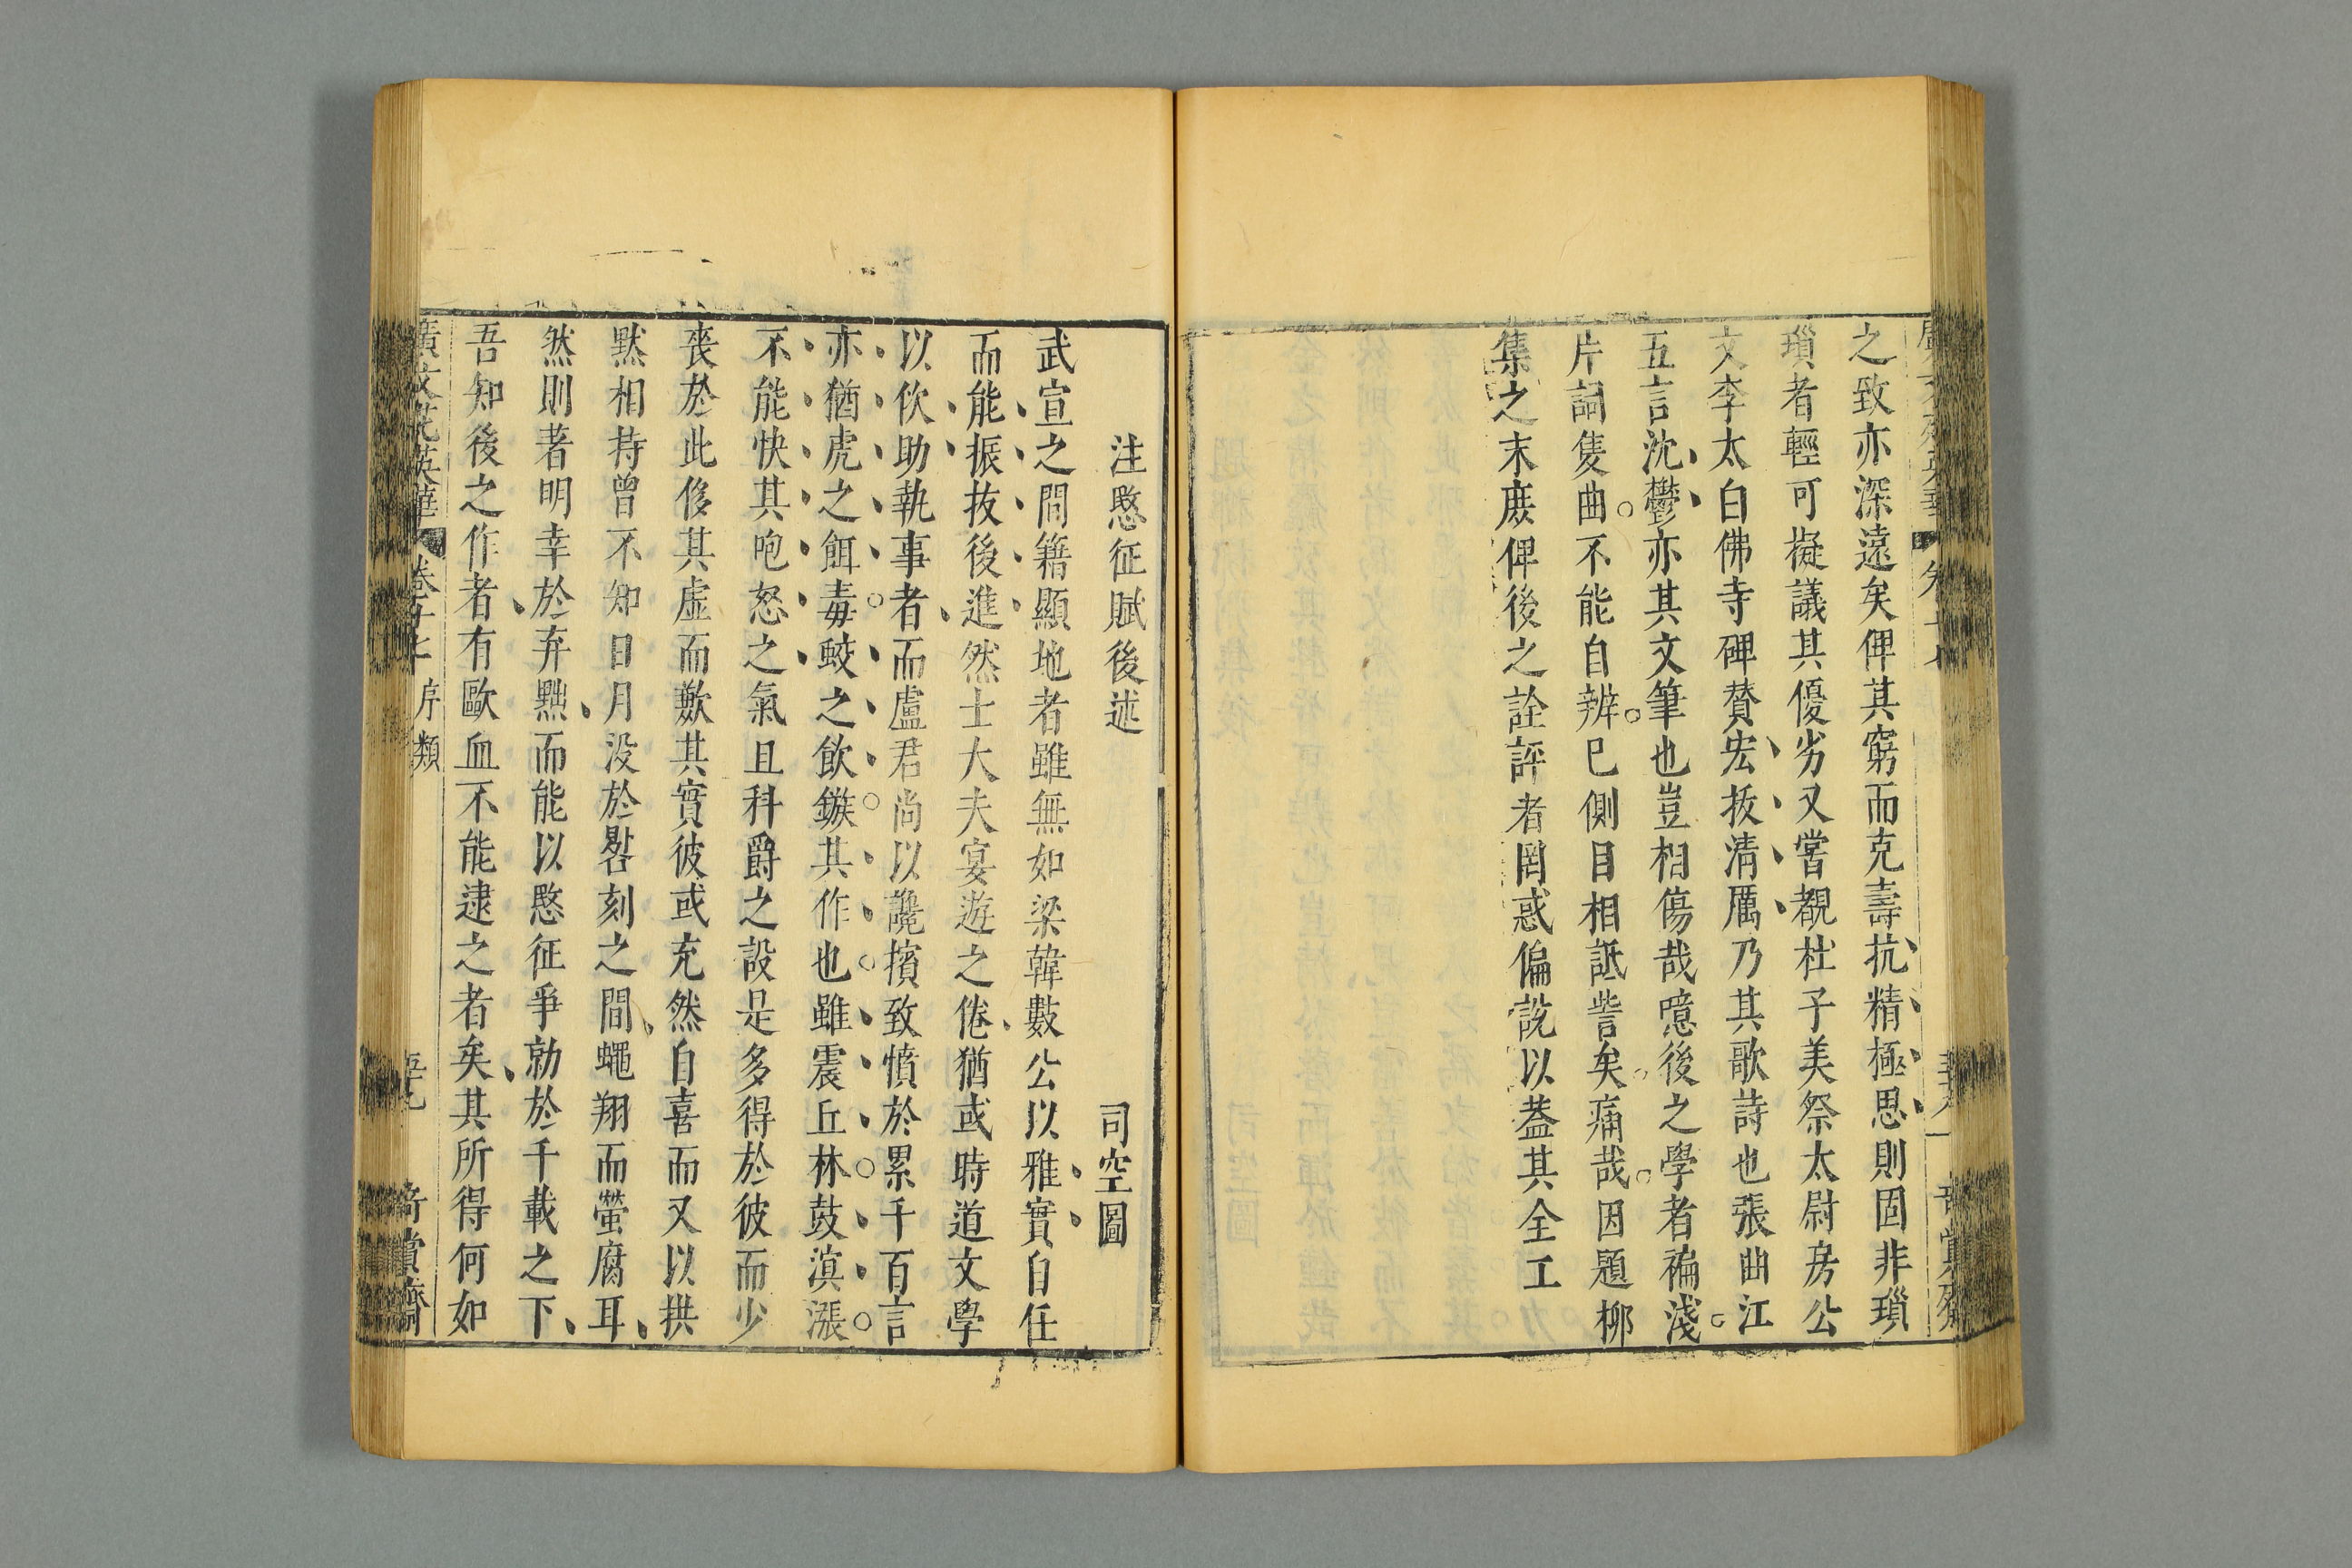 之致亦深遠矣俾其窮而克壽抗精極思則固非瑣
瑣者輕可擬議其優劣又嘗覩杜子美祭太尉房公
文李太白佛寺碑贊宏拔清厲乃其歌詩也張曲江
五言沈鬱亦其文筆也豈相傷哉噫後之學者褊淺
片詞隻曲不能自辨已側目相詆訾矣痛哉因題柳
集之末庶俾後之詮評者罔惑偏說以蓋其全工
注愍征賦後述
司空圖
武宣之間籍顯地者雖無如梁韓數公以雅實自任
而能振拔後進然士大夫宴遊之倦猶或時道文學
以佽助執事者而盧君尚以讒擯致憤於累千百言
亦猶虎之餌毒蛟之飲鏃其作也雖震丘林鼓溟漲
不能快其咆怒之氣且科爵之設是多得於彼而少
喪於此侈其虛而歉其實彼或充然自喜而又以拱
默相持曾不知日月沒於晷刻之間蠅翔而螢腐耳
然則著明幸於弃黜而能以愍征爭勍於千載之下
吾知後之作者有歐血不能逮之者矣其所得何如
廣文苑英華 卷十七 序類 奇賞齋